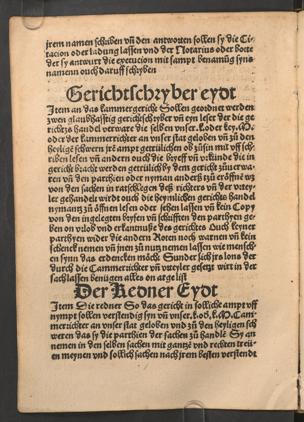 jrem namen schriben vñ den antworten sollen sy die Ci-
tacion oder ladung lassen vnd der Notarius oder botte
der sy antwurt die execucion mit sampt benamūg syns
namenn ouch daruff schryben
Gerichtschryber eydt
Item an das kammergericht Sollen geordnet werden
zwen glaubhafftig gerichtschryber vñ eyn leser der die ge
richtzs handel verware die selben vnser. k. oder key. M.
oder der kammerrichter an vnser stat geloben vñ zů den
heylige schwern jre ampt getrülichen ob zůsin mit vff sch-
riben lesen vñ andern ouch die bryeff vñ vrkünde die in
gericht bracht werden getrülich by dem gericht zůuerwa-
ren vñ den parthien oder nyman anders zů eröffne wz
von den sachen in ratschlegen deß richters vñ der vrtey-
ler gehandelt wirdt ouch die heymlichen gerichts handel
nymantz zů öffnen lesen oder sehen lassen vñ kein Copy
von den ingelegten bryfen vñ schrifften den parthyen ge-
ben on vrlob vnd erkantnuß des gerichtes Ouch keyner
parthien wider die andern Roten noch warnen vñ kein
schenck nemen vñ jnen zů nutz nemen lassen wie menschen
synn das erdencken möcht Sunder sich jrs lons der
durch die Cammerrichter vñ vrteyler gesetzt wirt in der
sach lassen benügen alles on argelist
Der Redner Eydt
Item Die redner So das gericht in solliche ampt vff
nympt sollen verstendig syn vñ vnser. kö. k. M. Cam-
merrichter an vnser stat geloben vnd zů den heyligen sch
weren das sy die parthien der sachen zů handlē Sy an
nemen in den selben sachen mit gantzē vnd rechten treü-
en meynen vnd sollich sachen nach jrem besten verstendt